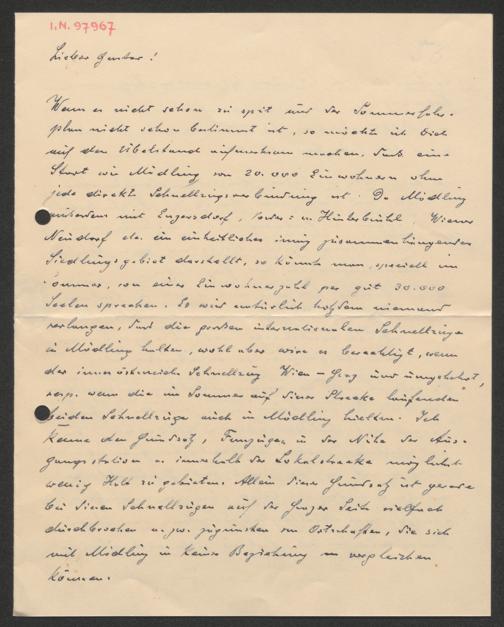 I.N. 97967
Lieber Gustav!
Wenn es nicht schon zu spät und der Sommerfahr-
plan nicht schon bestimmt ist, so möchte ich Dich
auf den Übelstand aufmerksam machen, daß eine
Stadt wie Mödling von 20.000 Einwohnern ohne
jede direkte Schnellzugsverbindung ist. Da Mödling
außerdem mit Enzersdorf, Vorder- u. Hinterbrühl, Wiener
Neudorf etc. ein einheitliches innig zusammenhängendes
Siedlungsgebiet darstellt, so könnte man, speziell im
Sommer, von einer Einwohnerzahl per gut 30.000
Seelen sprechen. Es wird natürlich trotzdem niemand
verlangen, daß die großen internationalen Schnellzüge
in Mödling halten, wohl aber wäre es berechtigt, wenn
der innerösterreich. Schnellzug Wien-Graz und umgekehrt,
resp. wenn die im Sommer auf dieser Strecke laufenden
beiden Schnellzüge auch in Mödling hielten. Ich
kenne den Grundsatz, Fernzügen in der Nähe der Aus-
gangsstation u. innerhalb der Lokalstrecke möglichst
wenig Halt zu gebieten. Allein dieser Grundsatz ist gerade
bei diesen Schnellzügen auf der Grazer Seite vielfach
durchbrochen u. zw. zugunsten von Ortschaften, die sich
mit Mödling in keiner Beziehung vergleichen
können.